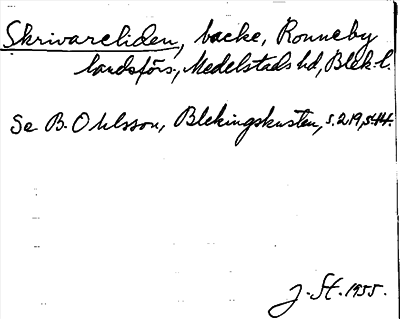 Skrivareliden, backe, Ronneby
landsförs., Medelstads hd, Blek. l.
Se B. Ohlsson, Blekingskusten, s. 219,
J. St. 1955.